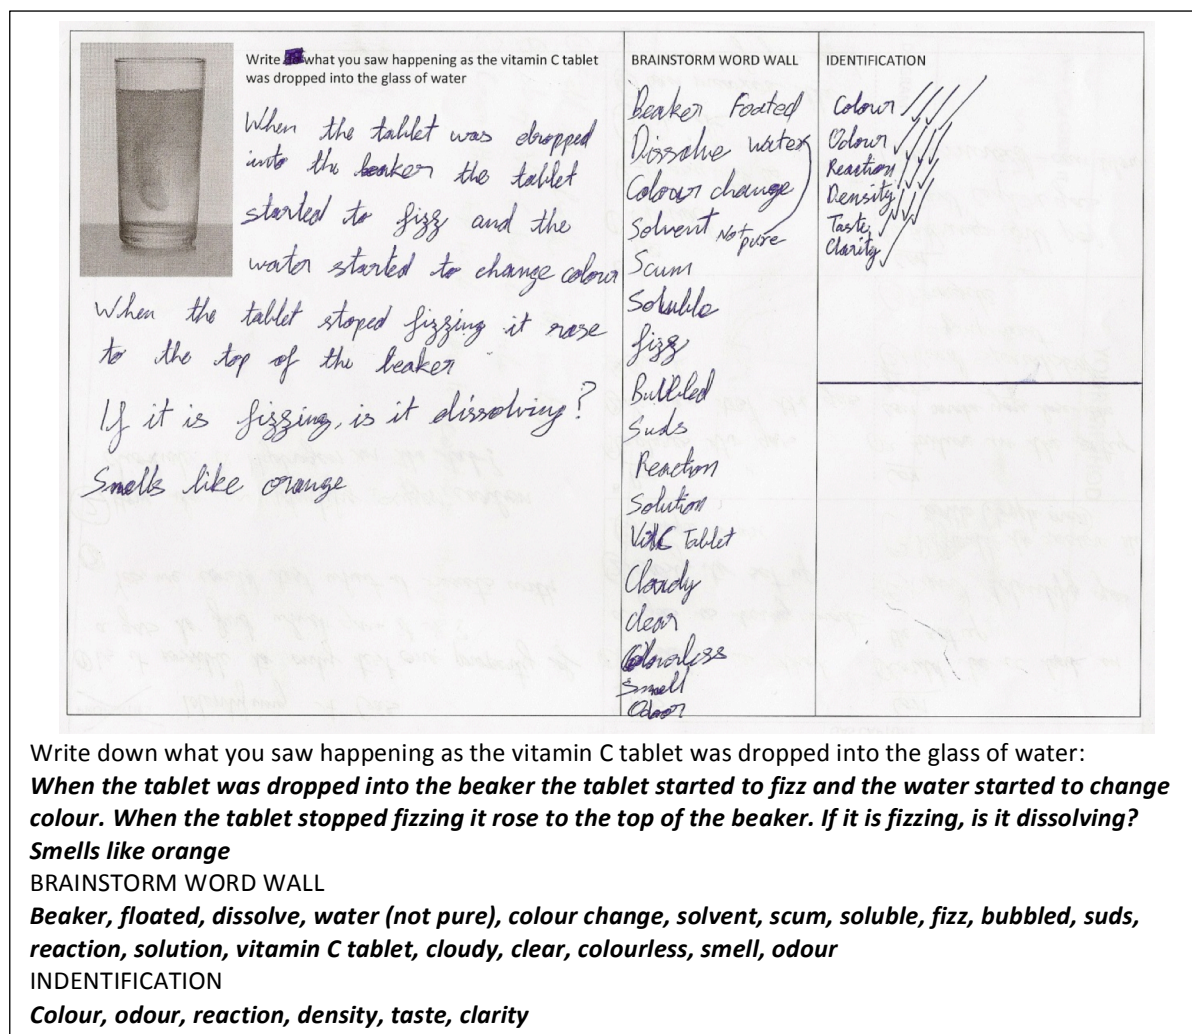 Write what you saw happening as the vitamin C tablet
was dropped into the glass of water
When the tablet was dropped
into the beaker the tablet
started to fizz and the
water started to change colour
When the tablet stoped fizzing it rose
to the top of the beaker
If it is fizzing, is it dissolving?
Smells like orange
BRAINSTORM WORD WALL
Beaker Foated
Dissolve water
Colour change
Solvent Not pure
Scum
Soluble
fizz
Bubbled
Suds
Reaction
Solution
Vit C Tablet
Cloudy
clear
Colourless
Smell
Odour
IDENTIFICATION
Colour
Odour
Reaction
Density
Taste
Clarity
Write down what you saw happening as the vitamin C tablet was dropped into the glass of water:
When the tablet was dropped into the beaker the tablet started to fizz and the water started to change
colour. When the tablet stopped fizzing it rose to the top of the beaker. If it is fizzing, is it dissolving?
Smells like orange
BRAINSTORM WORD WALL
Beaker, floated, dissolve, water (not pure), colour change, solvent, scum, soluble, fizz, bubbled, suds,
reaction, solution, vitamin C tablet, cloudy, clear, colourless, smell, odour
INDENTIFICATION
Colour, odour, reaction, density, taste, clarity